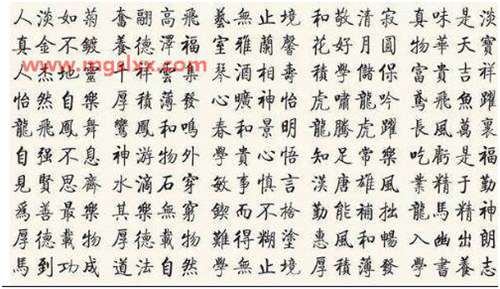 人淡如菊 奮翮高飛 藝無止境 和敬清寂 真味是淡
真金不鍍 養德澤福 室雅蘭馨 花好月圓 物華天寶
人杰地靈 千祥雲集 琴 壽 學儲保 富貴吉祥
www.mgslxx.com
怡然自樂 厚積薄發 曠神怡 虎嘯龍吟 鳶飛魚躍
龍飛鳳舞 鸞鳳和鳴 春和景明 龍騰虎躍 長風萬裏
自强不息 神游物外 學貴心悟 知足常樂 吃虧是福
見賢思齊 水滴石穿 敏事慎言 漢唐雄風 業精于勤
為善最樂 其樂無窮 鍥而不捨 勤能補拙 龍馬精神
厚德載物 厚德載物 難得糊塗 惠風和暢 入幽出朗
馬到功成 道法自然 學無止境 厚積薄發 學書養志